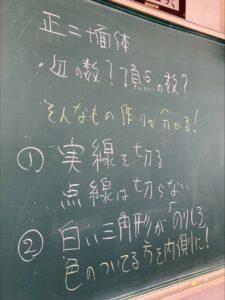 正二十面体
・辺の数？頂点の数？
そんなもの作りゃ分かる！
① 実線を切る
点線は切らない
② 白い三角形が「のりしろ」
色のついてる方を内側に！